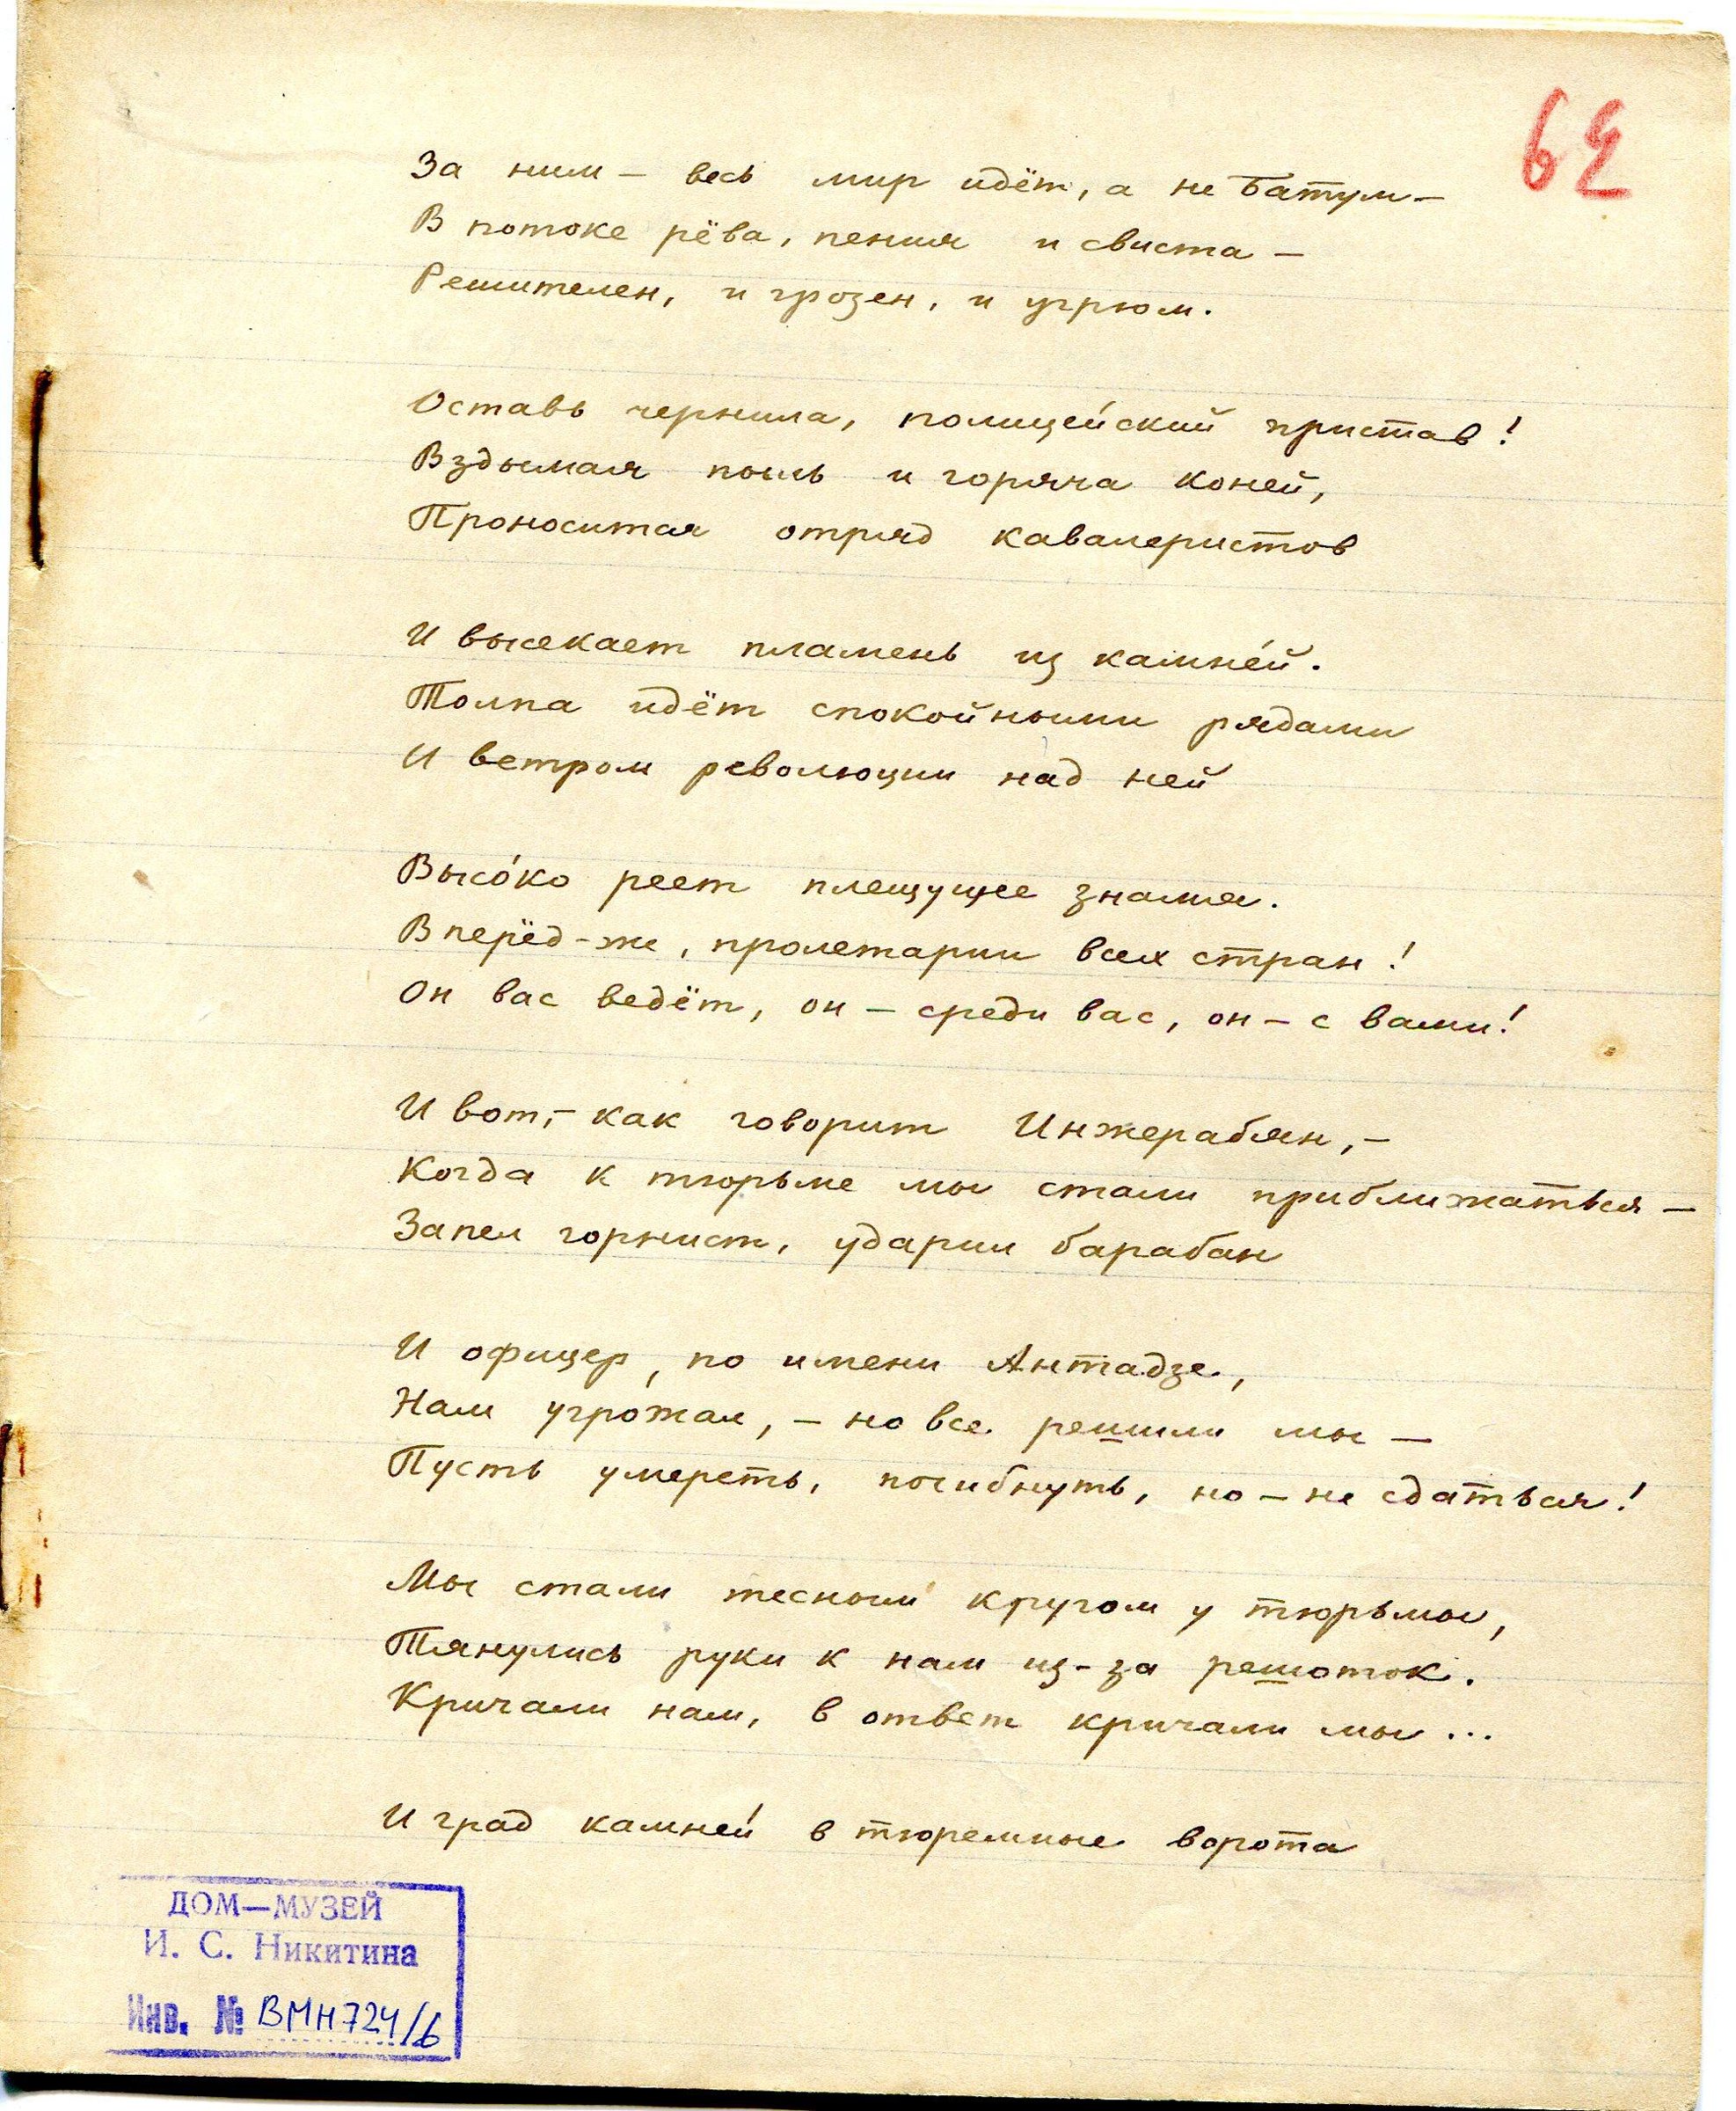 62
За ним — весь мир идёт, а не Батум —
В потоке рёва, пения и свиста —
Решителен, и грозен, и угрюм.
Оставь чернила, полицейский пристав!
Вздымая пыль и горяча коней,
Проносится отряд кавалеристов
И высекает пламень из камне́й.
Толпа идёт спокойными рядами
И ветром революции над ней
Высо́ко реет плещущее знамя.
Вперёд-же, пролетарии всех стран!
Он вас ведёт, он — среди вас, он — с вами!
И вот, — как говорит Инжерабян, —
Когда к тюрьме мы стали приближаться —
Запел горнист, ударил барабан
И офицер, по имени Антадзе,
Нам угрожал, — но все решили мы —
Пусть умереть, погибнуть, но — не сдаться!
Мы стали тесным кругом у тюрьмы,
Тянулись руки к нам из-за решоток.
Кричали нам, в ответ кричали мы ...
И град камне́й в тюремные ворота
ДОМ—МУЗЕЙ
И. С. Никитина
Инв. № ВМН724/6